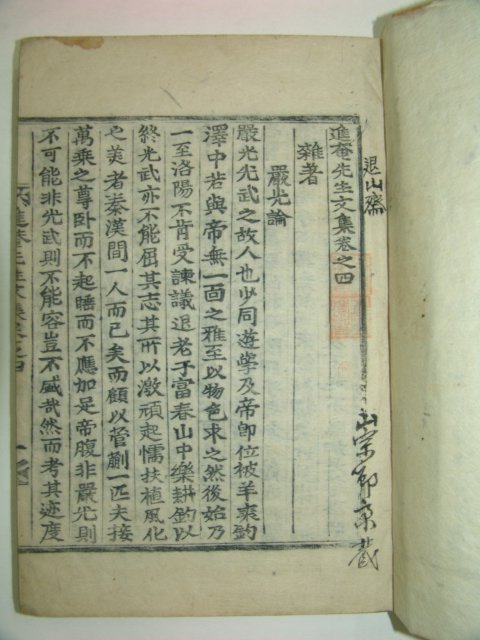 退山齋
進菴先生文集卷之四
雜著
嚴光論
嚴光光武之故人也少同遊學及帝卽位被羊裘釣
澤中若與帝無一面之雅至以物色求之然後始乃
一至洛陽不肯受諫議退老于富春山中樂耕釣以
終光武亦不能屈其志其所以激頑起懦扶植風化
之美者秦漢間一人而已矣而顧以管蒯一匹夫接
萬乘之尊卧而不起睡而不應加足帝腹非嚴光則
不可能非光武則不能容豈不盛哉然而考其迹度
進菴先生文集卷之四
一
山宗
藏